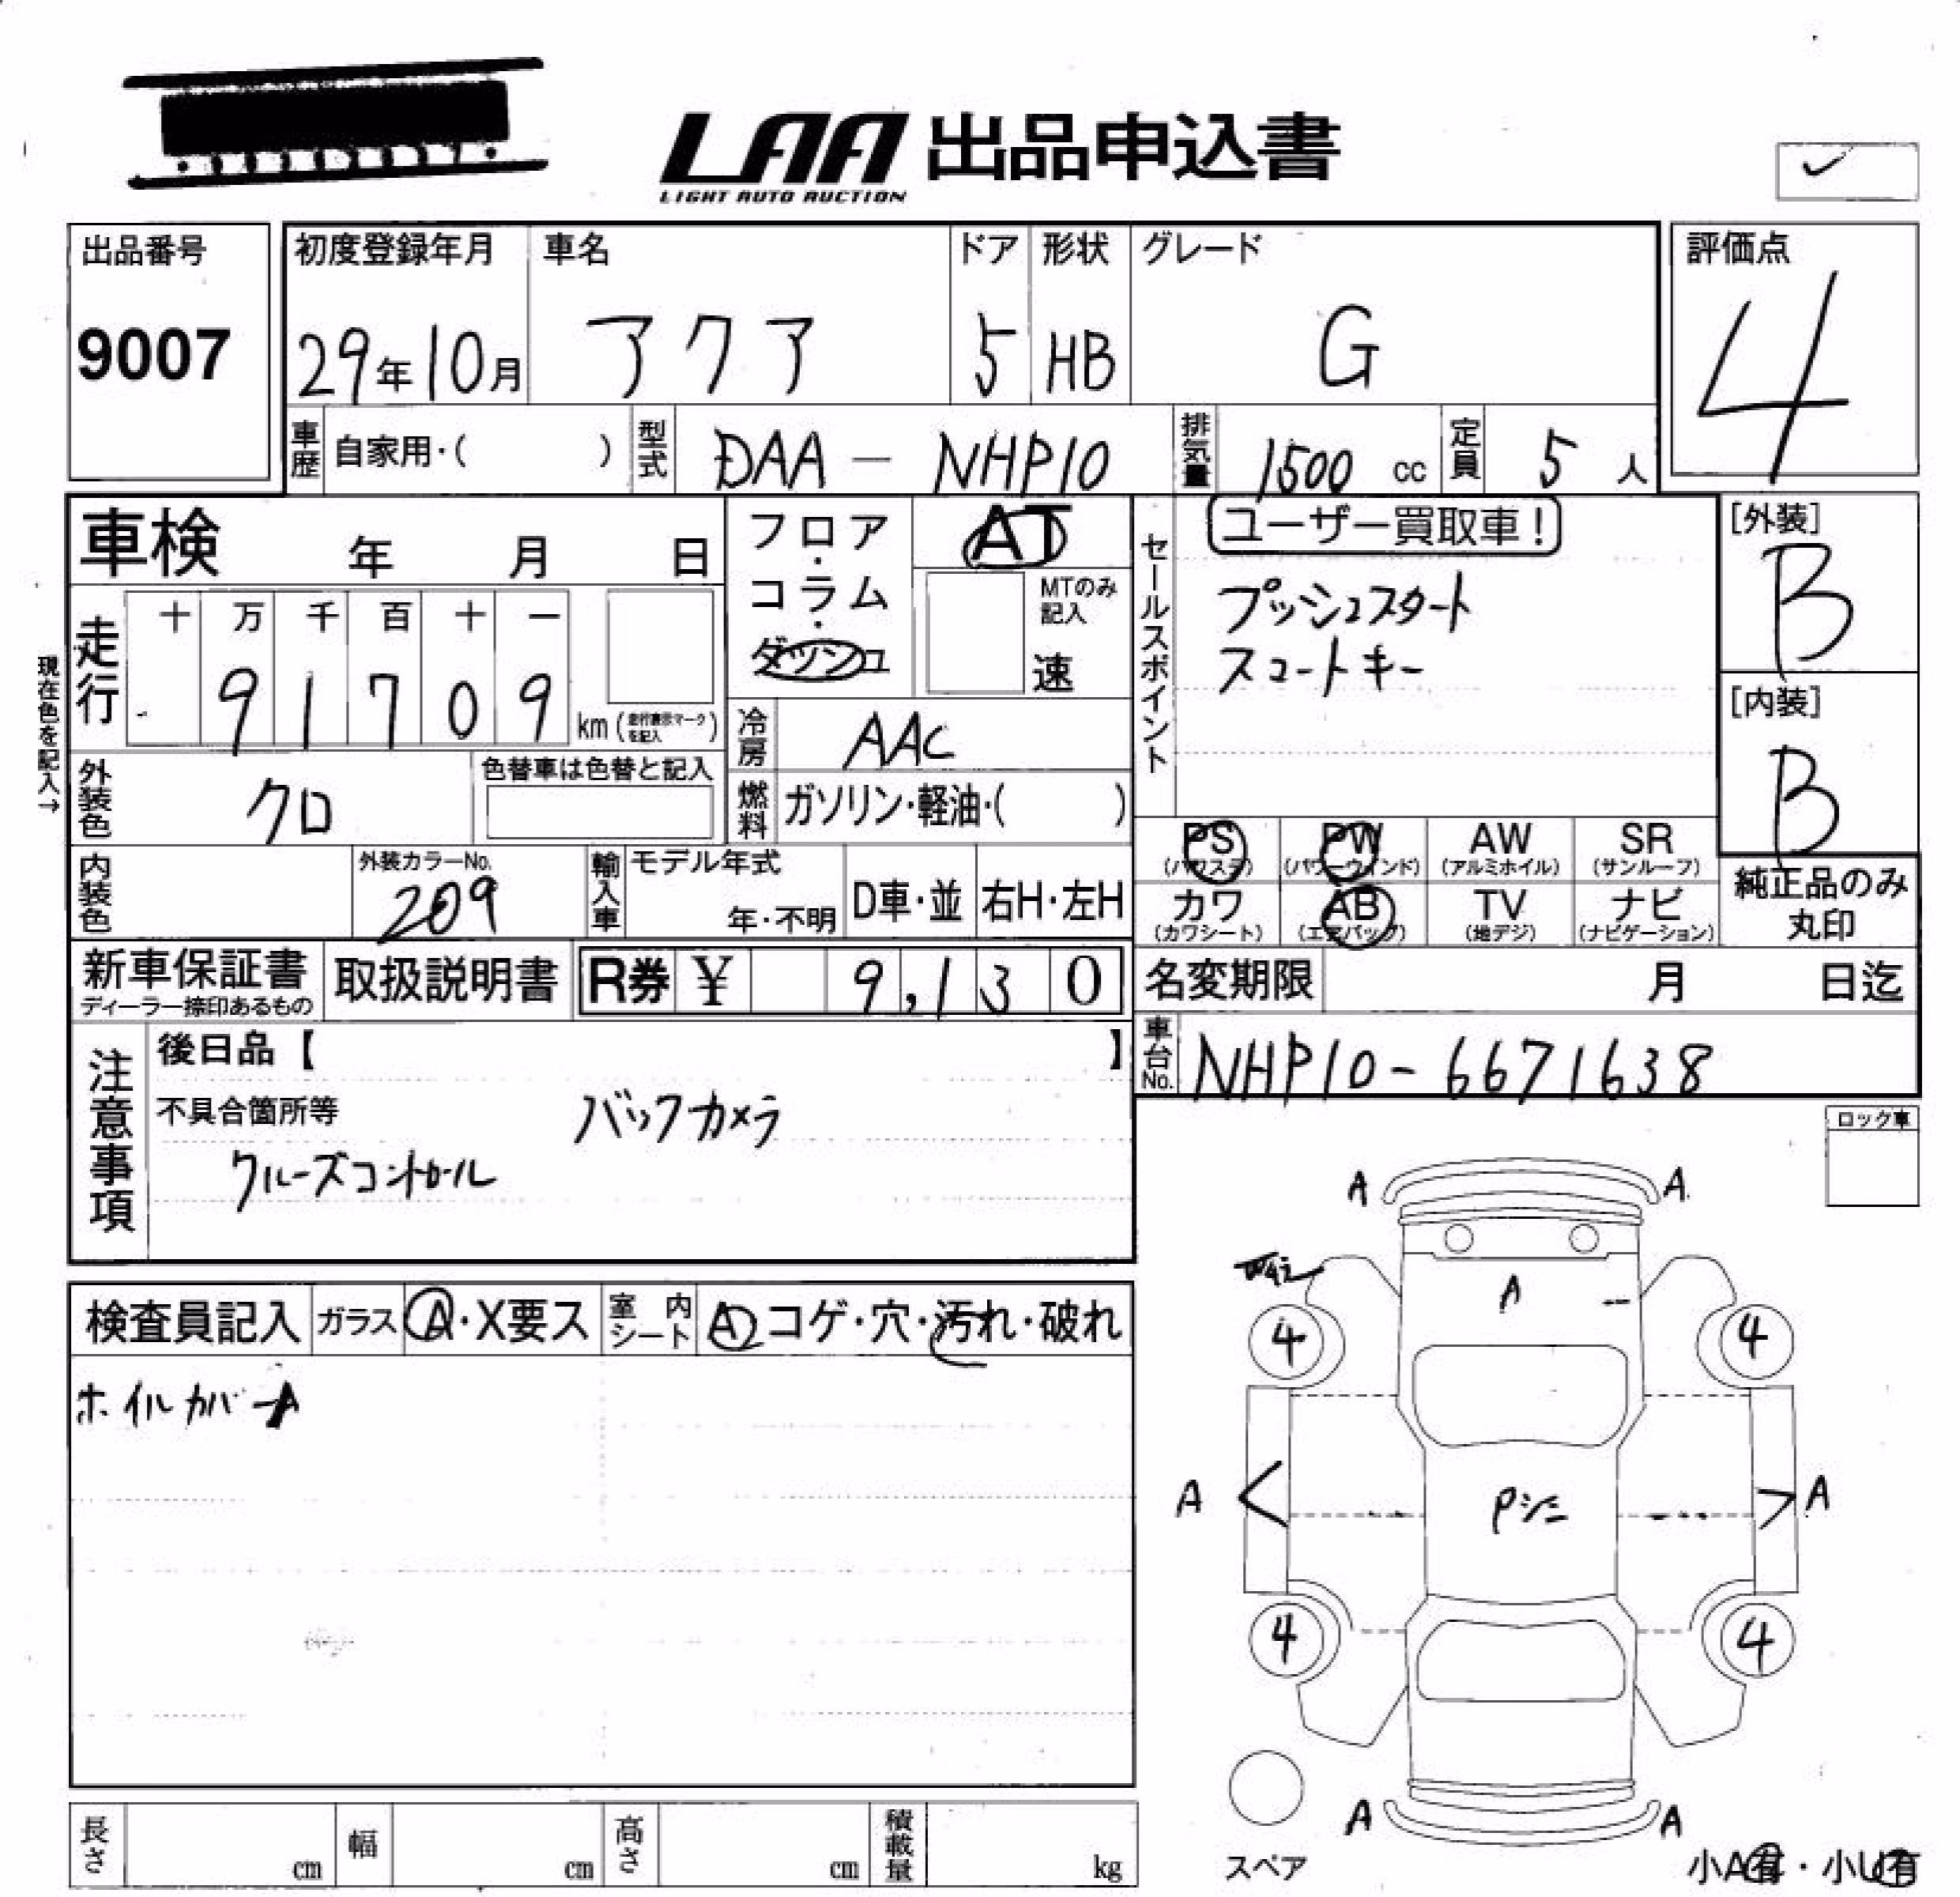 LAA 出品申込書
LIGHT AUTO AUCTION
出品番号
9007
初度登録年月 車名 ドア 形状 グレード
29年10月 アクア 5 HB G
評価点
4
車歴 自家用・( ) 型式 DAA - NHP10 排気量 1500 cc 定員 5 人
車検 年 月 日
フロア・コラム・ダッシュ
AT
MTのみ記入
速
現在色を記入→
走行 十 万 千 百 十 一
9 1 7 0 9 km (走行表示マークを記入)
冷房 AAC
燃料 ガソリン・軽油・( )
外装色 クロ
色替車は色替と記入
内装色
外装カラーNo.
209
輸入車 モデル年式
年・不明 D車・並 右H・左H
セールスポイント
ユーザー買取車!
プッシュスタート
スマートキー
[外装]
B
[内装]
B
PS (パワステ) PW (パワーウインド) AW (アルミホイル) SR (サンルーフ)
カワ (カワシート) AB (エアバッグ) TV (地デジ) ナビ (ナビゲーション)
純正品のみ
丸印
新車保証書
ディーラー捺印あるもの
取扱説明書 R券 ¥ 9,130
名変期限 月 日迄
車台No. NHP10-6671638
注意事項
後日品【 】
不具合箇所等
バックカメラ
クルーズコントロール
ロック車
検査員記入 ガラス A・X要ス 室内シート A コゲ・穴・汚れ・破れ
ホイルカバーA
A A
A
4 4
A A
Pシミ
4 4
A A
スペア
小A有・小U有
長さ cm 幅 cm 高さ cm 積載量 kg